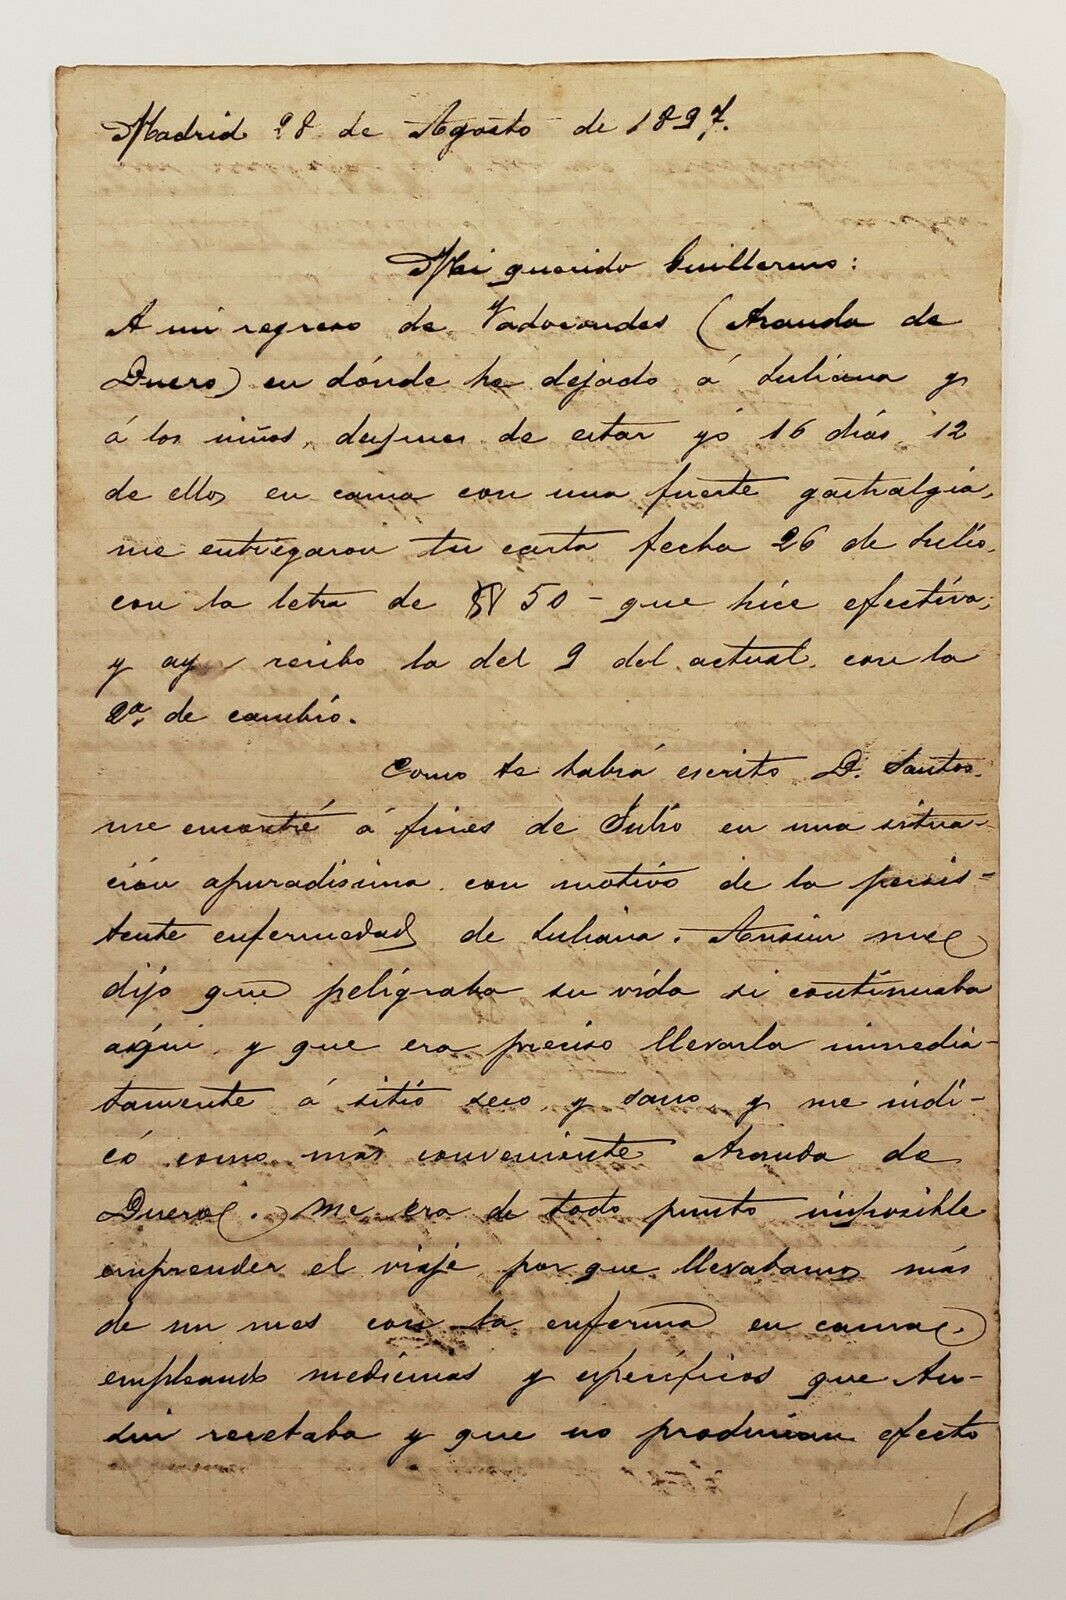 Madrid 28 de Agosto de 1897.
Mi querido Guillermo:
A mi regreso de Vadocondes (Aranda de
Duero) en dónde he dejado á Juliana y
á los niños, despues de estar yó 16 dias, 12
de ellos en cama con una fuerte gastralgia,
me entregaron tu carta fecha 26 de Julio,
con la letra de $ 50 - que hice efectiva;
y ay recibo la del 9 del actual, con la
2ª, de cambio.
Como te habrá escrito D. Santos,
me encontré á fines de Julio en una situa-
ción apuradisima, con motivo de la persis-
tente enfermedad de Juliana. me
dijo que peligraba su vida si continuaba
aqui, y que era preciso llevarla inmedia-
tamente á sitio seco, y sano, y me indi-
có como más conveniente Aranda de
Duero. Me era de todo punto imposible
emprender el viaje, por que llevabamos más
de un mes con la enferma en cama,
empleando medicinas y especificos que
recetaba y que no producian efecto